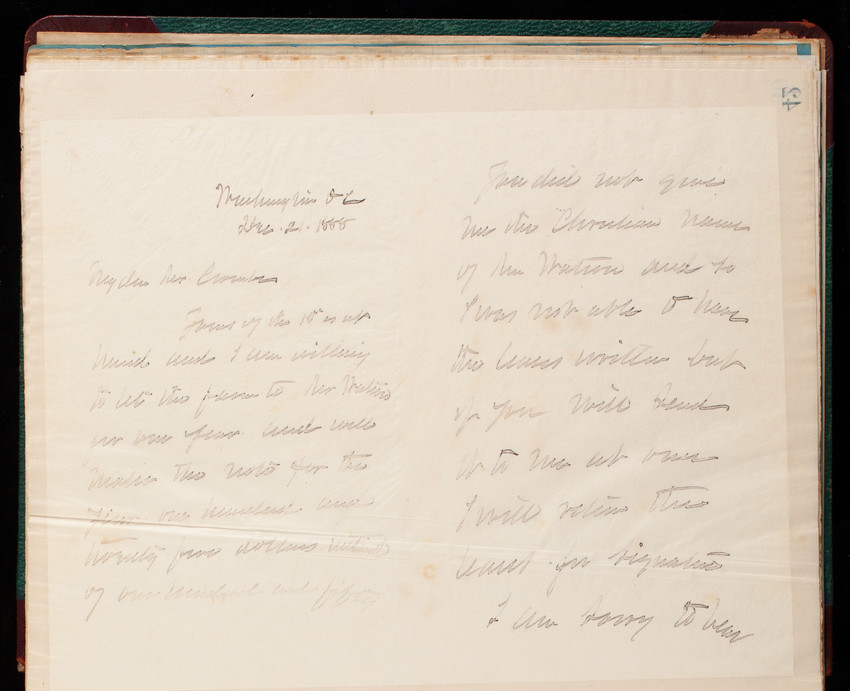 Washington D C
Dec. 21. 1888
My dear Mr.
Yours of the 10" is at
hand and I am willing
to let the farm to Mr Watson
for one year and will
make the rate for the
year one hundred and
twenty five dollars instead
of one hundred and fifty
You did not give
me the Christian name
of Mr Watson and so
I was not able to have
the lease written but
if you will send
it to me at once
I will return the
lease for signature
I am sorry to hear
45